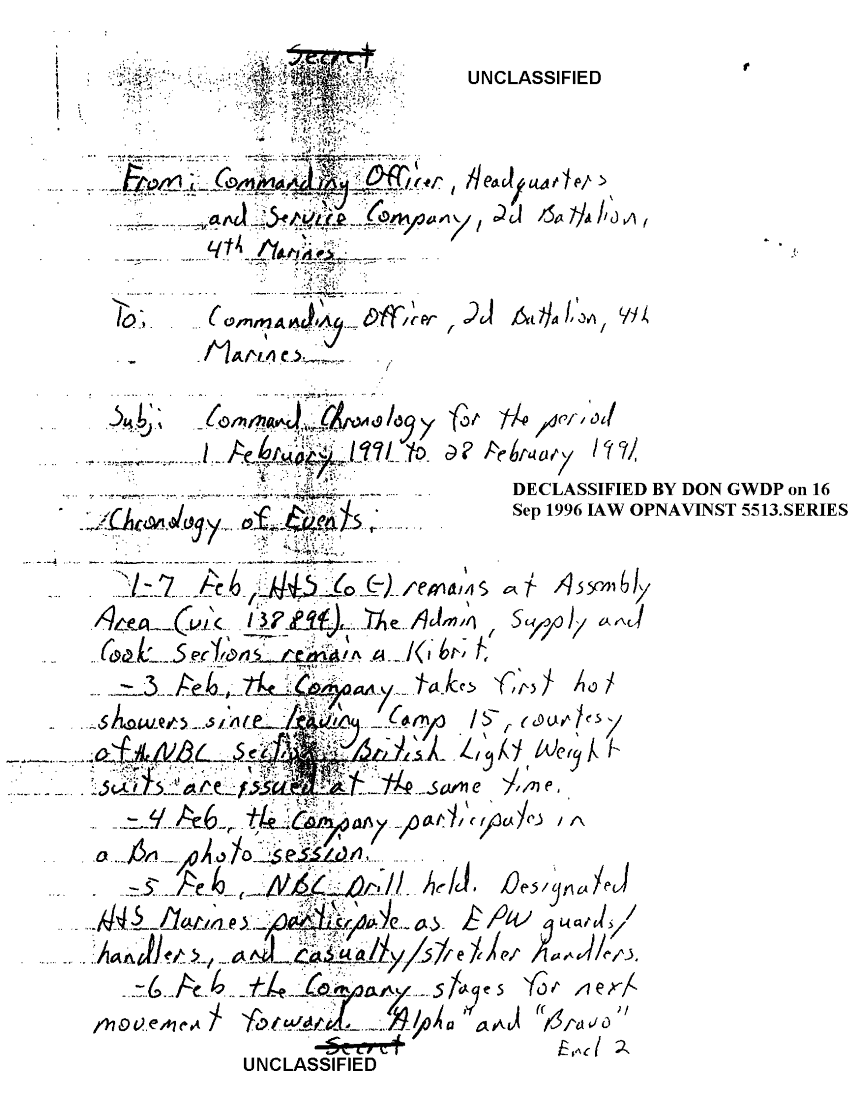 Secret
UNCLASSIFIED
From: Commanding Officer, Headquarters
and Service Company, 2d Battalion,
4th Marines
To: Commanding Officer, 2d Battalion, 4th
Marines.
Subj: Command Chronology for the period
1 February 1991 to 28 February 1991.
DECLASSIFIED BY DON GWDP on 16
Sep 1996 IAW OPNAVINST 5513.SERIES
Chronology of Events:
1-7 Feb, H&S Co (-) remains at Assembly
Area (vic 138894). The Admin, Supply and
Cook Sections remain a Kibrit.
-3 Feb, the Company takes first hot
showers since leaving Camp 15, courtesy
of the NBC Section. British Light Weight
suits are issued at the same time.
-4 Feb, the Company participates in
a Bn photo session.
-5 Feb, NBC Drill held. Designated
H&S Marines participate as EPW guards/
handlers, and casualty/stretcher handlers.
-6 Feb the Company stages for next
movement forward. "Alpha" and "Bravo"
Encl 2
Secret
UNCLASSIFIED